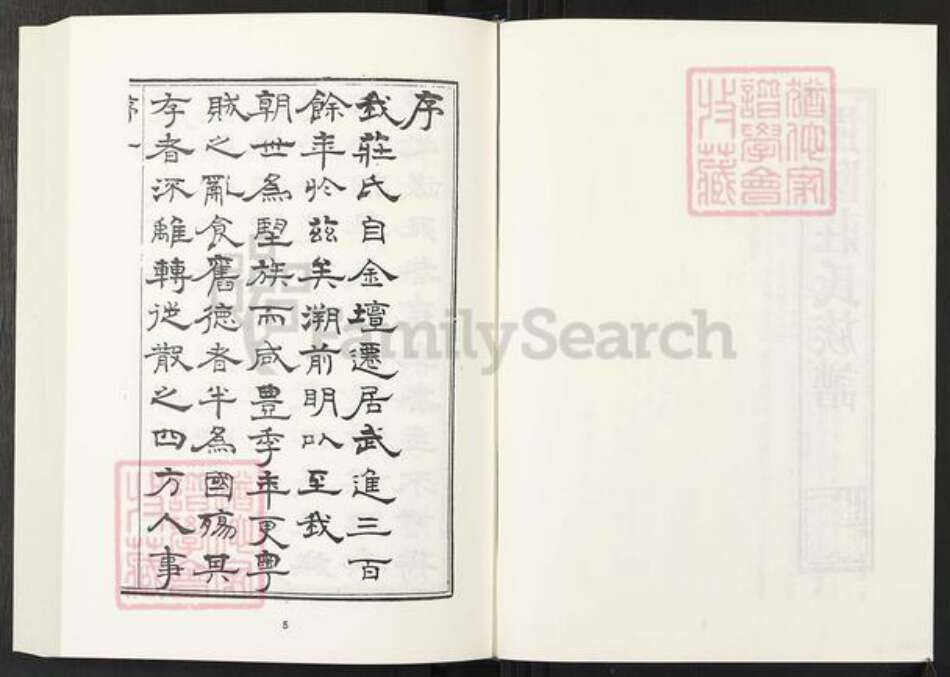 序
我莊氏自金壇遷居武進三百
餘年於茲矣溯前明以至我
朝世為望族而咸豊季年更粵
賊之亂食舊德者半為國殤其
存者流離轉徙散之四方人事
序一
5
猶他家
譜學會
收藏
猶他家
譜學會
收藏
FamilySearch
莊氏族譜